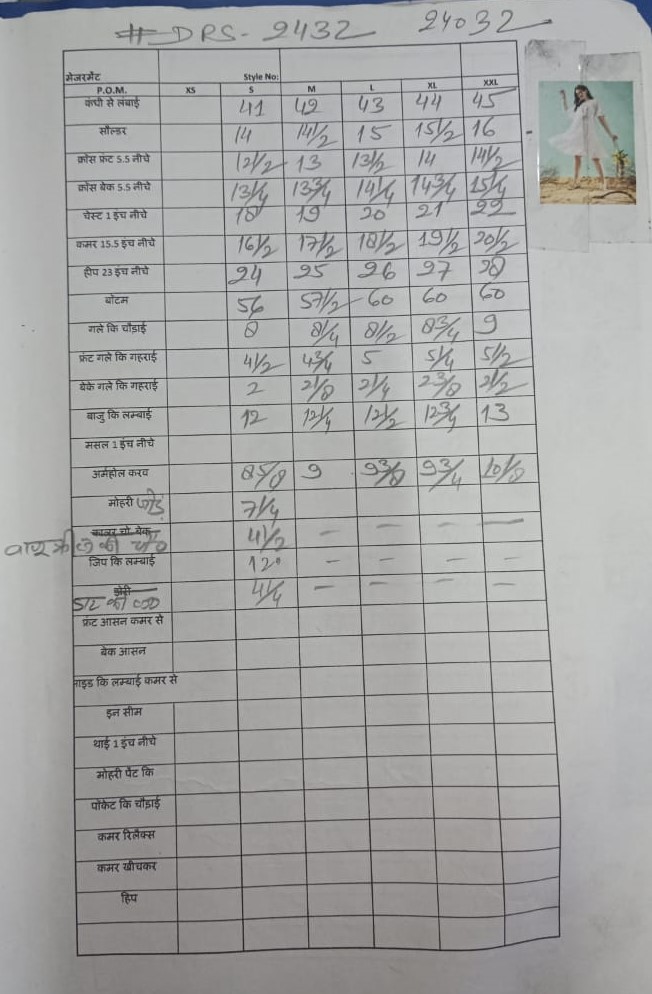 # DRS- 2432 24032
मेजरमेंट Style No:
P.O.M. XS S M L XL XXL
कंधी से लंबाई 41 42 43 44 45
सौल्डर 14 14 1/2 15 15 1/2 16
क्रॉस फ्रंट 5.5 नीचे 12 1/2 13 13 1/2 14 14 1/2
क्रॉस बेक 5.5 नीचे 13 1/4 13 3/4 14 1/4 14 3/4 15 1/4
चेस्ट 1 इंच नीचे 18 19 20 21 22
कमर 15.5 इंच नीचे 16 1/2 17 1/2 18 1/2 19 1/2 20 1/2
हीप 23 इंच नीचे 24 25 26 27 28
बोटम 56 57 1/2 60 60 60
गले कि चौड़ाई 8 8 1/4 8 1/2 8 3/4 9
फ्रंट गले कि गहराई 4 1/2 4 3/4 5 5 1/4 5 1/2
बेक गले कि गहराई 2 2 1/8 2 1/4 2 3/8 2 1/2
बाजु कि लम्बाई 12 12 1/4 12 1/2 12 3/4 13
मसल 1 इंच नीचे
अर्महोल करव 8 5/8 9 9 3/8 9 3/4 10 1/8
मोहरी 7 1/4
कालर चो बेक 4 1/2 - - - -
जिप कि लम्बाई 12" - - - -
डोरी 4 1/4 - - - -
फ्रंट आसन कमर से
बेक आसन
साइड कि लम्बाई कमर से
इन सीम
थाई 1 इंच नीचे
मोहरी पेंट कि
पॉकेट कि चौड़ाई
कमर रिलैक्स
कमर खीचकर
हिप